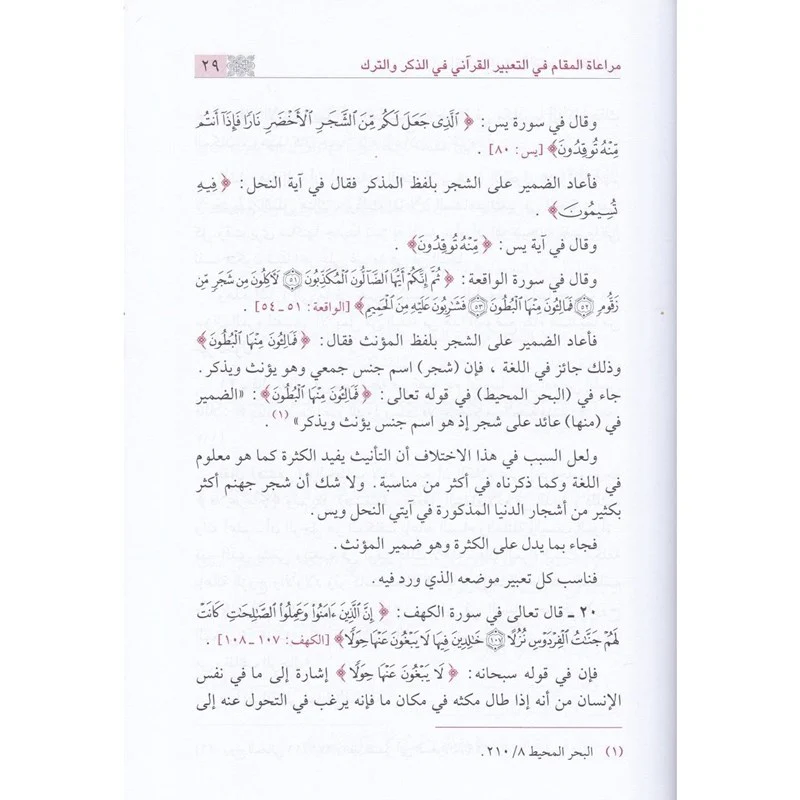 مراعاة المقام في التعبير القرآني في الذكر والترك ٢٩
وقال في سورة يس: ﴿ ٱلَّذِى جَعَلَ لَكُم مِّنَ ٱلشَّجَرِ ٱلْأَخْضَرِ نَارًا فَإِذَآ أَنتُم
مِّنْهُ تُوقِدُونَ﴾ [يس: ٨٠] .
فأعاد الضمير على الشجر بلفظ المذكر فقال في آية النحل: ﴿ فِيهِ
تُسِيمُونَ﴾ .
وقال في آية يس: ﴿ مِّنْهُ تُوقِدُونَ﴾ .
وقال في سورة الواقعة: ﴿ ثُمَّ إِنَّكُمْ أَيُّهَا ٱلضَّآلُّونَ ٱلْمُكَذِّبُونَ ۝٥١ لَأَكِلُونَ مِن شَجَرٍ مِّن
زَقُّومٍ ۝٥٢ فَمَالِـُٔونَ مِنْهَا ٱلْبُطُونَ ۝٥٣ فَشَٰرِبُونَ عَلَيْهِ مِنَ ٱلْحَمِيمِ﴾ [الواقعة: ٥١ ـ ٥٤] .
فأعاد الضمير على الشجر بلفظ المؤنث فقال: ﴿ فَمَالِـُٔونَ مِنْهَا ٱلْبُطُونَ﴾
وذلك جائز في اللغة ، فإن (شجر) اسم جنس جمعي وهو يؤنث ويذكر .
جاء في (البحر المحيط) في قوله تعالى: ﴿ فَمَالِـُٔونَ مِنْهَا ٱلْبُطُونَ﴾: «الضمير
في (منها) عائد على شجر إذ هو اسم جنس يؤنث ويذكر» (١) .
ولعل السبب في هذا الاختلاف أن التأنيث يفيد الكثرة كما هو معلوم
في اللغة وكما ذكرناه في أكثر من مناسبة . ولا شك أن شجر جهنم أكثر
بكثير من أشجار الدنيا المذكورة في آيتي النحل ويس .
فجاء بما يدل على الكثرة وهو ضمير المؤنث .
فناسب كل تعبير موضعه الذي ورد فيه .
٢٠ ـ قال تعالى في سورة الكهف: ﴿ إِنَّ ٱلَّذِينَ ءَامَنُوا۟ وَعَمِلُوا۟ ٱلصَّٰلِحَٰتِ كَانَتْ
لَهُمْ جَنَّٰتُ ٱلْفِرْدَوْسِ نُزُلًا ۝١٠٧ خَٰلِدِينَ فِيهَا لَا يَبْغُونَ عَنْهَا حِوَلًا﴾ [الكهف: ١٠٧ ـ ١٠٨] .
فإن في قوله سبحانه: ﴿ لَا يَبْغُونَ عَنْهَا حِوَلًا﴾ إشارة إلى ما في نفس
الإنسان من أنه إذا طال مكثه في مكان ما فإنه يرغب في التحول عنه إلى
(١) البحر المحيط ٨/ ٢١٠ .